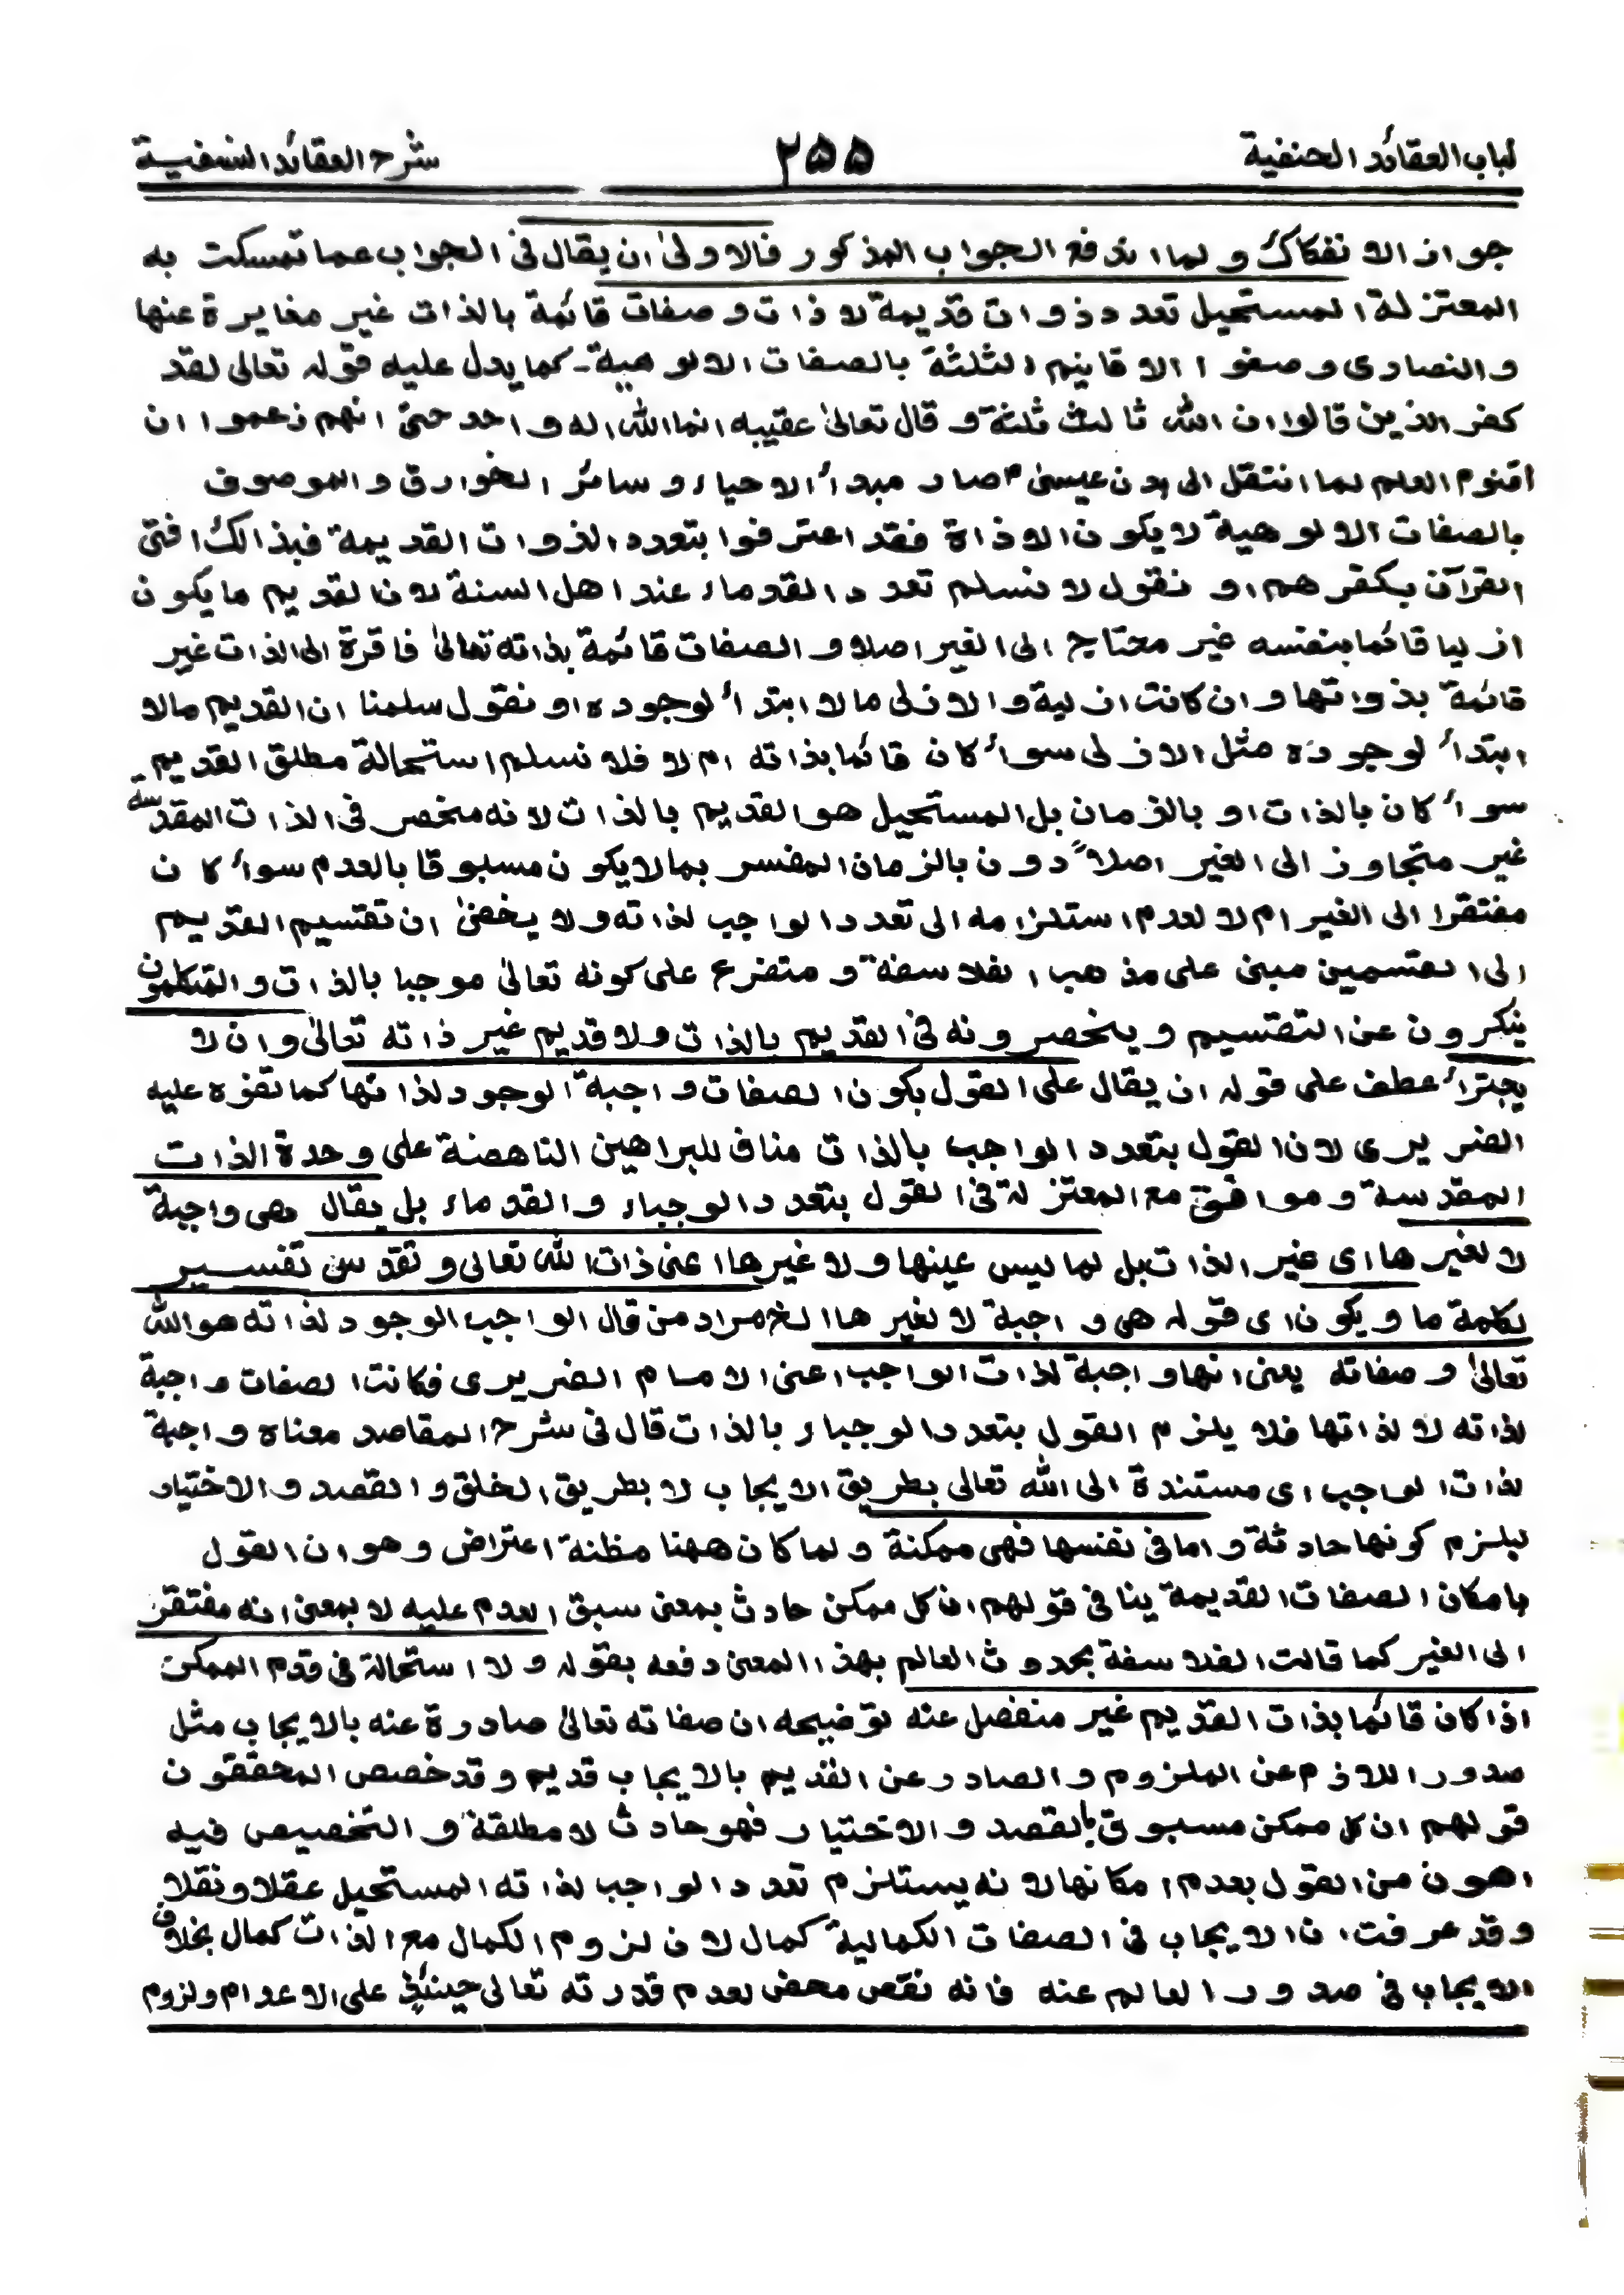 لباب العقائد الحنفية ٢٥٥ شرح العقائد النسفية
جواز الانفكاك ولما اندفع الجواب المذكور فالاولىٰ ان يقال فى الجواب عما تمسكت به
المعتزلة المستحيل تعدد ذوات قديمة لا ذات وصفات قائمة بالذات غير مغايرة عنها
والنصارى وصفوا الاقانيم الثلثة بالصفات الالوهية۔ كما يدل عليه قوله تعالى لقد
كفر الذين قالوا ان الله ثالث ثلثة وقال تعالىٰ عقيبه انما الله اله واحد حتىٰ انهم زعموا ان
اقنوم العلم لما انتقل الى بدن عيسىٰ صار مبدأ الاحياء وسائر الخوارق والموصوف
بالصفات الالوهية لا يكون الا ذاة فقد اعترفوا بتعدد الذوات القديمة فبذالك افتى
القرآن بكفرهم او نقول لا نسلم تعدد القدماء عند اهل السنة لان القديم ما يكون
ازليا قائما بنفسه غير محتاج الى الغير اصلا و الصفات قائمة بذاته تعالىٰ فاقرة الى الذات غير
قائمة بذواتها وان كانت ازلية والازلى ما لا ابتدأ لوجوده او نقول سلمنا ان القديم مالا
ابتدأ لوجوده مثل الازلى سوأ كان قائما بذاته ام لا فلا نسلم استحالة مطلق القديم
سوأ كان بالذات او بالزمان بل المستحيل هو القديم بالذات لانه منحصر فى الذات المقدسة
غير متجاوز الى الغير اصلاً دون بالزمان المفسر بما لا يكون مسبوقا بالعدم سوأ كان
مفتقرا الى الغير ام لا لعدم استلزامه الى تعدد الواجب لذاته ولا يخفىٰ ان تقسيم القديم
الى القسمين مبنى على مذهب الفلاسفة و متفرع على كونه تعالىٰ موجبا بالذات والمتكلمون
ينكرون عن التقسيم وينحصرونه فى القديم بالذات ولا قديم غير ذاته تعالىٰ وان لا
يجترأ عطف على قوله ان يقال على القول بكون الصفات واجبة الوجود لذاتها كما تفوه عليه
الضريرى لان القول بتعدد الواجب بالذات مناف للبراهين الناهضة على وحدة الذات
المقدسة و موافق مع المعتزلة فى القول بتعدد الوجباء والقدماء بل يقال هى واجبة
لا لغيرها اى غير الذات بل لما ليس عينها ولا غيرها اعنى ذات الله تعالى وتقدس تفسير
لكلمة ما ويكون اى قوله هى واجبة لا لغيرها الخ مراد من قال الواجب الوجود لذاته هو الله
تعالىٰ وصفاته يعنى انها واجبة لذات الواجب اعنى الامام الضريرى فكانت الصفات واجبة
لذاته لا لذاتها فلا يلزم القول بتعدد الوجباء بالذات قال فى شرح المقاصد معناه واجبة
لذات الواجب اى مستندة الى الله تعالى بطريق الايجاب لا بطريق الخلق والقصد والاختيار
ليلزم كونها حادثة واما فى نفسها فهى ممكنة ولما كان ههنا مظنة اعتراض وهو ان القول
بامكان الصفات القديمة ينافى قولهم ان كل ممكن حادث بمعنى سبق العدم عليه لا بمعنى انه مفتقر
الى الغير كما قالت الفلاسفة بحدوث العالم بهذا المعنى دفعه بقوله ولا استحالة فى قدم الممكن
اذا كان قائما بذات القديم غير منفصل عنه توضيحه ان صفاته تعالىٰ صادرة عنه بالايجاب مثل
صدور اللازم عن الملزوم والصادر عن القديم بالايجاب قديم وقد خصص المحققون
قولهم ان كل ممكن مسبوق بالقصد والاختيار فهو حادث لا مطلقة والتخصيص فيه
اهون من القول بعدم امكانها لانه يستلزم تعدد الواجب لذاته المستحيل عقلا ونقلا
وقد عرفت ان الايجاب فى الصفات الكمالية كمال لان لزوم الكمال مع الذات كمال بخلاف
الايجاب فى صدور العالم عنه فانه نقص محض لعدم قدرته تعالى حينئذ على الاعدام ولزوم